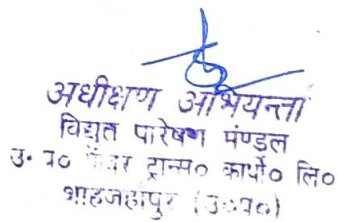 अधीक्षण अभियन्ता
विद्युत पारेषण मण्डल
उ० प्र० पॉवर ट्रान्स० कार्पो० लि०
शाहजहाँपुर (उ०प्र०)